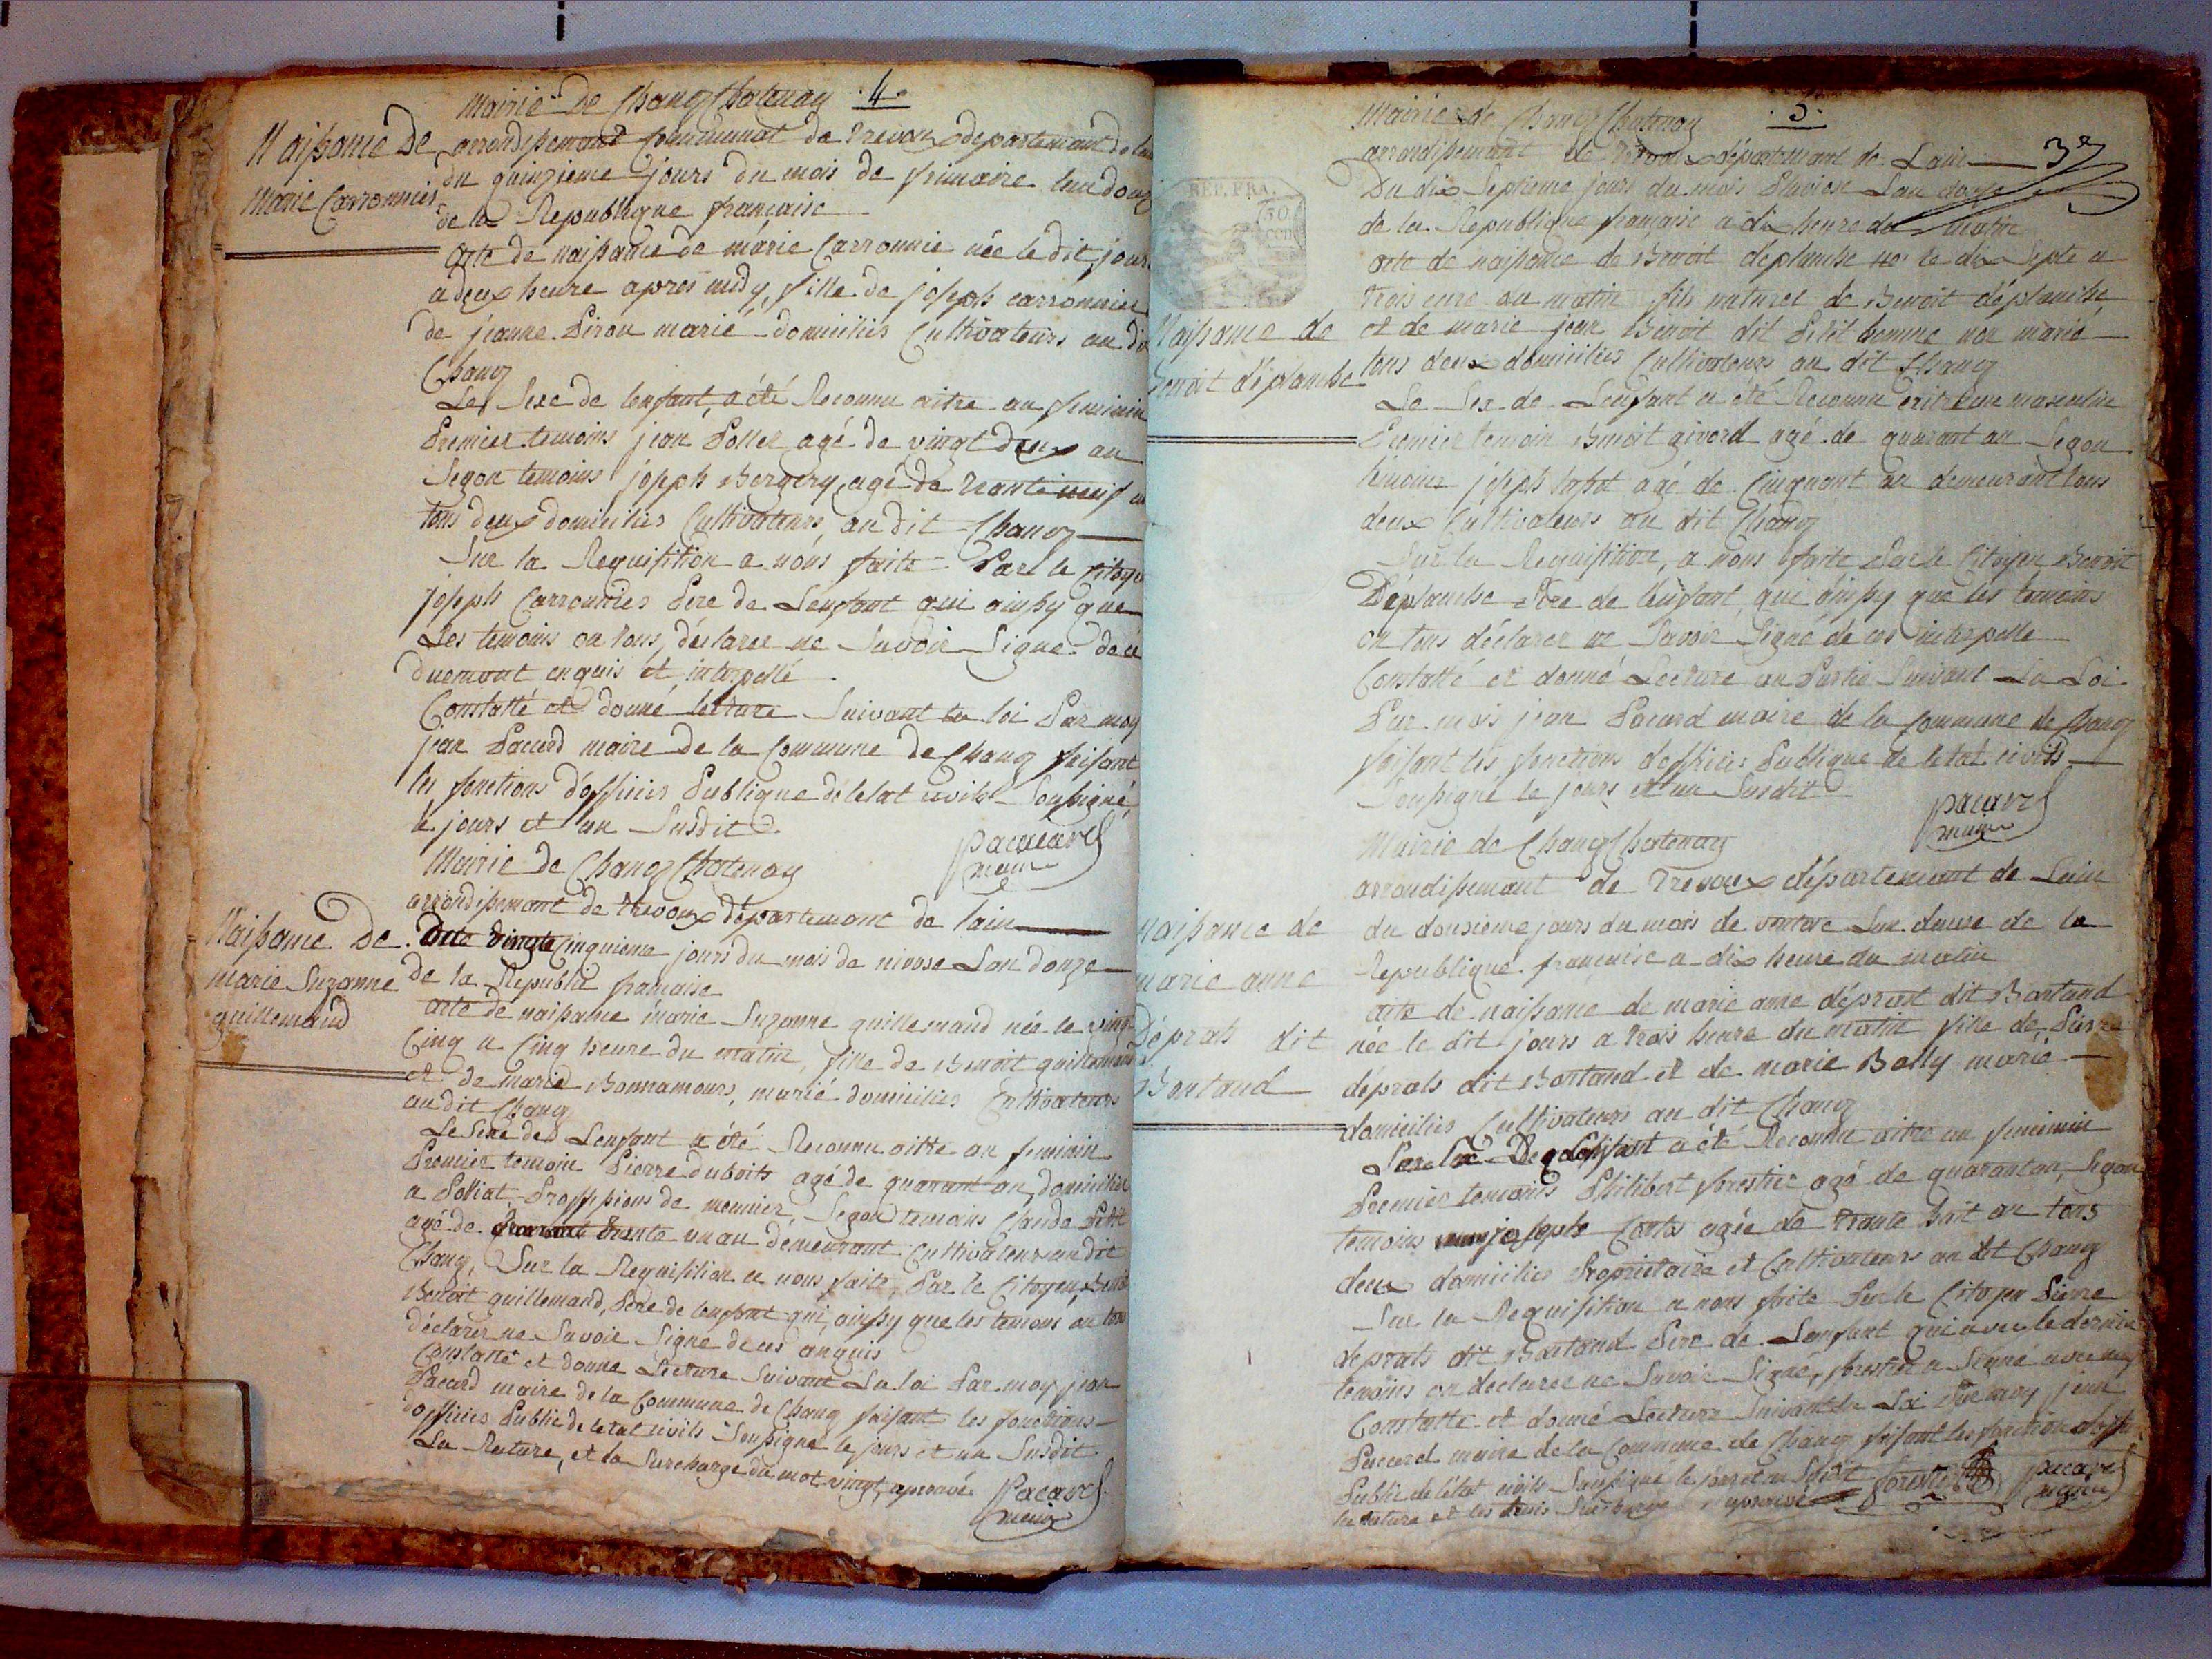 Mairie de Chanoz Chatenay .4.
Naissance de
Marie Carronnier
arrondissemant Communnat de Trevoux departemant de lain
du quinzieme jours du mois de frimaire lan douze
de la Republique francaise
acte de naissance de marie Carronnie née le dit jour
a deux heure apres midy, fille de joseph carronnier
de jeanne Piron marié domiciliés Cultivateurs au dit
Chanoz
Le Sexe de lenfant, a été Reconnu aitre au feminin
Premier temoins jean Poller agé de vingt deux an
Segon temoins joseph Bergery, agé de trante neuf an
tous deux domiciliés Cultivateurs, au dit Chanoz
Sur la Requisition a nous faite Par le Citoyen
joseph Carronnier Pere de Lenfant qui ainssy que
Les temoins on tous, déclarer ne Savoir Signe de ce
duemant enquis et interpellé
Constatté et donné lecture Suivant la loi Par moy
jean Paccard maire de la Commune de Chanoz faisant
les fonctions d'officier Publique de letat civils Soussigné
le jours et an Susdit
Paccard
maire
Mairie de Chanoz Chatenay
arrondissemant de trevoux departemant de lain
Naissance de
marie Suzanne
guillemaud
vingt Cinquieme jours du mois de nivose Lan douze
de la Republi francaise
acte de naissance marie Suzanne guillemaud née le vingt
Cinq a Cinq heure du matin, fille de Benoit guillemaud
et de marie Bonnamours, marié domiciliés Cultivateurs
au dit Chanoz
Le Sexe de Lenfant a été Reconnu aitre au feminin
Premier temoin Pierre duboits agé de quarant an, domicilié
a Polliat Proffessions de meunier, Segon temoins Claude Petit
agé de trante un an demeurant Cultivateur au dit
Chanoz, Sur la Requisition a nous faite, Par le Citoyen
Benoit guillemaud, Pere de lenfant qui, ainssy que les temoins on tous
déclarer ne Savoir Signe de ces anquis
Constatté et donne Lecture Suivant La loi Par moy jean
Pacard maire de la Commune de Chanoz faisant les fonctions
dofficier Public de letat civils Soussigne le jours et an Susdit
La Rature, et la Surcharge du mot vingt, aprouvé
Pacard
maire
Mairie de Chanoz Chatenay .5.
arrondissemant de Trevoux département de Lain 3e
REP. FRA.
50
cen
Du dix Septieme jours du mois Pluviose Lan douze
de la Republique francaise a dix heure du matin
Naissance de
Benoit déplanche
acte de naissance de Benoit déplanche né le dix Septe a
trois eure au matin fils naturel de Benoit déplanche
et de marie jean Benoit dit Petit homme non marié
tous deux domiciliés Cultivateurs au dit Chanoz
Le Sex de Lenfant a été Reconnu masculin
Premier temoin Benoit givord agé de quarant an Segon
temoins joseph agé de Cinquant an demeurant tous
deux Cultivateurs au dit Chanoz
Sur la Requisition, a nous faite Par le Citoyen Benoit
Déplanche Pere de lenfant, qui ainssy que les temoins
on tous déclarer ne Savoir Signé de ces interpelle
Constatté et donné Lecture au Partie Suivant La Loi
Par mois jean Pacard maire de la Commune de Chanoz
faisant les fonctions dofficier Publique de letat civils
Soussigné le jours et an Susdit
pacard
maire
Mairie de Chanoz Chatenay
arrondissemant de Trevoux département de Lain
Naissance de
marie anne
Déprats dit
Bontand
du dousieme jours du mois de vantose Lan douse de la
Republique francaise a dix heure du matin
acte de naissance de marie anne déprast dit Bontand
née le dit jours a trois heure du matin fille de Pierre
déprats dit Bontand et de marie Bolly marié
domiciliés Cultivateurs au dit Chanoz
Lenfant a été Reconnu aitre au feminin
Premier temoins Philibert forestier agé de quarantan, Segon
temoins joseph Conte agée de trante huit an tous
deux domiciliés Propriétaire et Cultivateurs au dit Chanoz
Sur la Requisition a nous faite Par le Citoyen Pierre
deprats dit Bontand Pere de Lenfant qui avec le dernier
temoins on declarer ne Savoir Signé, forestier a Signé avec moy
Constatté et donné Lecture Suivant la Loi Par moy jean
Paccard maire de la Commune de Chanoz faisant les fonction doffi
Public de létat civils Soussigné le jours et an Susdit
la rature et les trois Surcharge aprouvé
forestier
pacard
maire